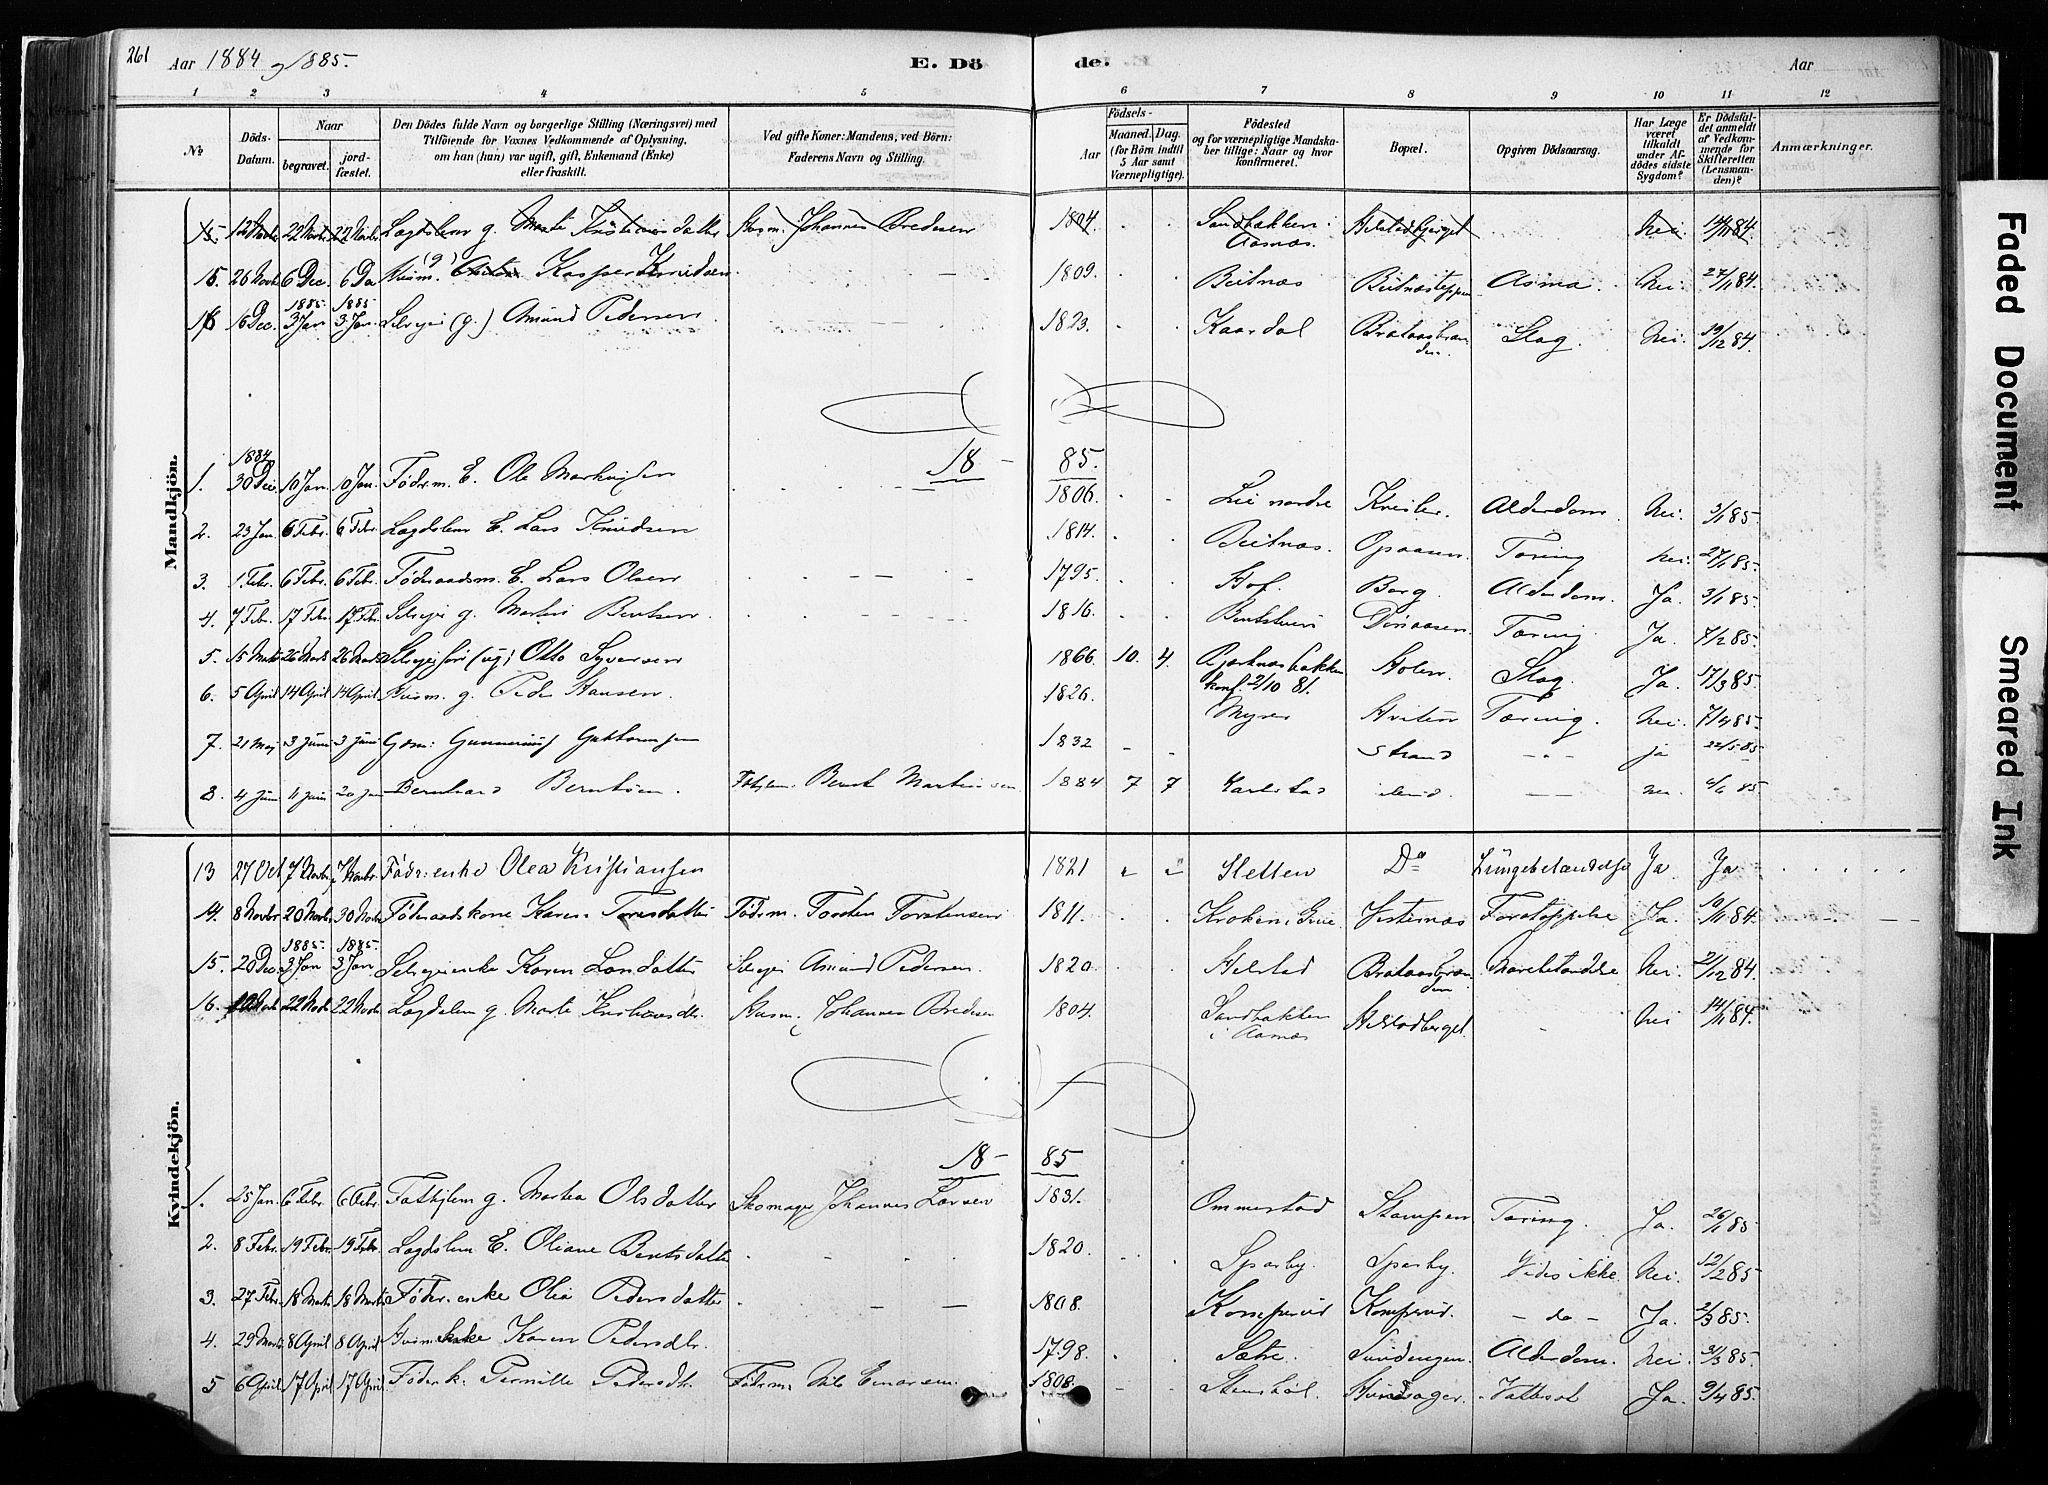 261 Aar 1884 og 1885. E. Dö de. Aar
1 2 3 4 5 6 7 8 9 10 11 12
No
Döds-Datum.
Naar begravet. jord-fæstet.
Den Dödes fulde Navn og borgerlige Stilling (Næringsvei) med Tilföiende for Voxnes Vedkommende af Oplysning, om han (hun) var ugift, gift, Enkemand (Enke) eller fraskilt.
Ved gifte Koner: Mandens, ved Börn: Faderens Navn og Stilling.
Födsels-
Aar Maaned. Dag. (for Börn indtil 5 Aar samt Værnepligtige).
Födested og for værnepligtige Mandskaber tillige: Naar og hvor konfirmeret.
Bopæl.
Opgiven Dödsaarsag.
Har Læge været tilkaldt under Afdödes sidste Sygdom?
Er Dödsfaldet anmeldt af Vedkommende for Skifteretten (Lensmanden)?
Anmærkninger.
Mandkjön.
15. 12 Novbr 22 Novbr 22 Novbr Lægdslem g. Marte Kristiansdatter Husm. Johannes Bredesen 1804 Sandbakken i Aasnæs. Helstadbjerget Nei 14/11 84.
15. 26 Novbr 6 Dec. 6 Dec Husm. (g) Kasper Knudsen 1809. Beitnæs Beitnæseppen Asma. Nei. 27/11 84.
16 16 Dec. 1885 3 Jan 1885 3 Jan. Selveier (g.) Amund Pedersen 1823. Kaardal Brataasbranden. Slag. Nei. 19/12 84.
18 - 85.
1. 1884 30 Dec. 10 Jan. 10 Jan. Födrm. E. Ole Markusen 1806. Lie nordre Alderdom. Nei. 3/1 85.
2. 23 Jan. 6 Febr. 6 Febr. Lægdslem E. Lars Knudsen 1814. Beitnæs. Opaasen. Tæring Nei. 27/1 85.
3. 1. Febr. 6 Febr. 6 Febr. Föderaadsm. E. Lars Olsen 1795. Hof. Berg. Alderdom. Ja. 3/1 85.
4. 7 Febr. 17 Febr. 17 Febr. Selveier g. Martin Berntsen 1816. Tæring. Ja. 7/2 85.
5. 15 Marts 26 Marts 26 Marts (ug.) Otto Syversen 1866. 10. 4. konf. 2/10 81. Holen. Slag. Ja. 17/3 85.
6. 5 April 14 April 14 April Husm. g. Peder Hansen. 1826. Myrer Tæring. Nei. 7/4 85.
7. 21 Maj 3 Juni 3 Juni Gunnerius Guttormsen 1832 Strand ja 22/5 85
8. 4 Juni 11 Juni 20 Jun Bernhard Berntsen. Bernt Martinsen. 1884 7 7 Karlstad nei 4/6 85.
Kvindekjön.
13 27 Oct 7 Novbr. 7 Novbr. Födr: enke Olea Kristiansen 1821 Sletten Do Lungebetændelse Ja Ja
14. 8 Novbr 20 Novbr 30 Novbr Föderaadskone Karen Torsdatter Födrm. Torsten Torstensen 1811. Kroken i Grue Ja. 10/11 84.
15. 20 Dec. 1885. 3 Jan 1885. 3 Jan Selveierenke Karen Larsdatter Selveier Amund Pedersen. 1820. Helstad Brataasbranden Nei. 21/12 84.
16. 22 Novbr 22 Novbr Lægdslem g. Marte Kristiansdtr. Husm. Johannes Bredesen 1804. Sandbakken i Aasnæs Helstadberget. Nei 14/11 84.
18 - 85
1. 25 Jan. 6 Febr. 6 Febr. Fattiglem g. Martea Olsdatter Skomager Johannes Larsen 1831. Ommerstad Stampen Tæring. Ja. 26/1 85
2. 8 Febr. 19 Febr. 19 Febr. Lægdslem E. Oliane Berntsdatter 1820. Sparby. Sparby. Vides ikke. Nei. 12/2 85
3. 27 Febr. 18 Marts 18 Marts Födr. enke Olea Pedersdatter 1808. - do - Ja. 2/3 85.
4. 29 Marts 8 April 8 April Husm. enke Karen Pedersdtr. 1798. Sætre. Alderdom. Nei. 31/3 85.
5 6 April 17 April 17 April Föderk. Pernille Pedersdtr. Födrm. Nils Einarsen. 1808. Vattersot Ja. 9/4 85.
Faded Document
Smeared Ink